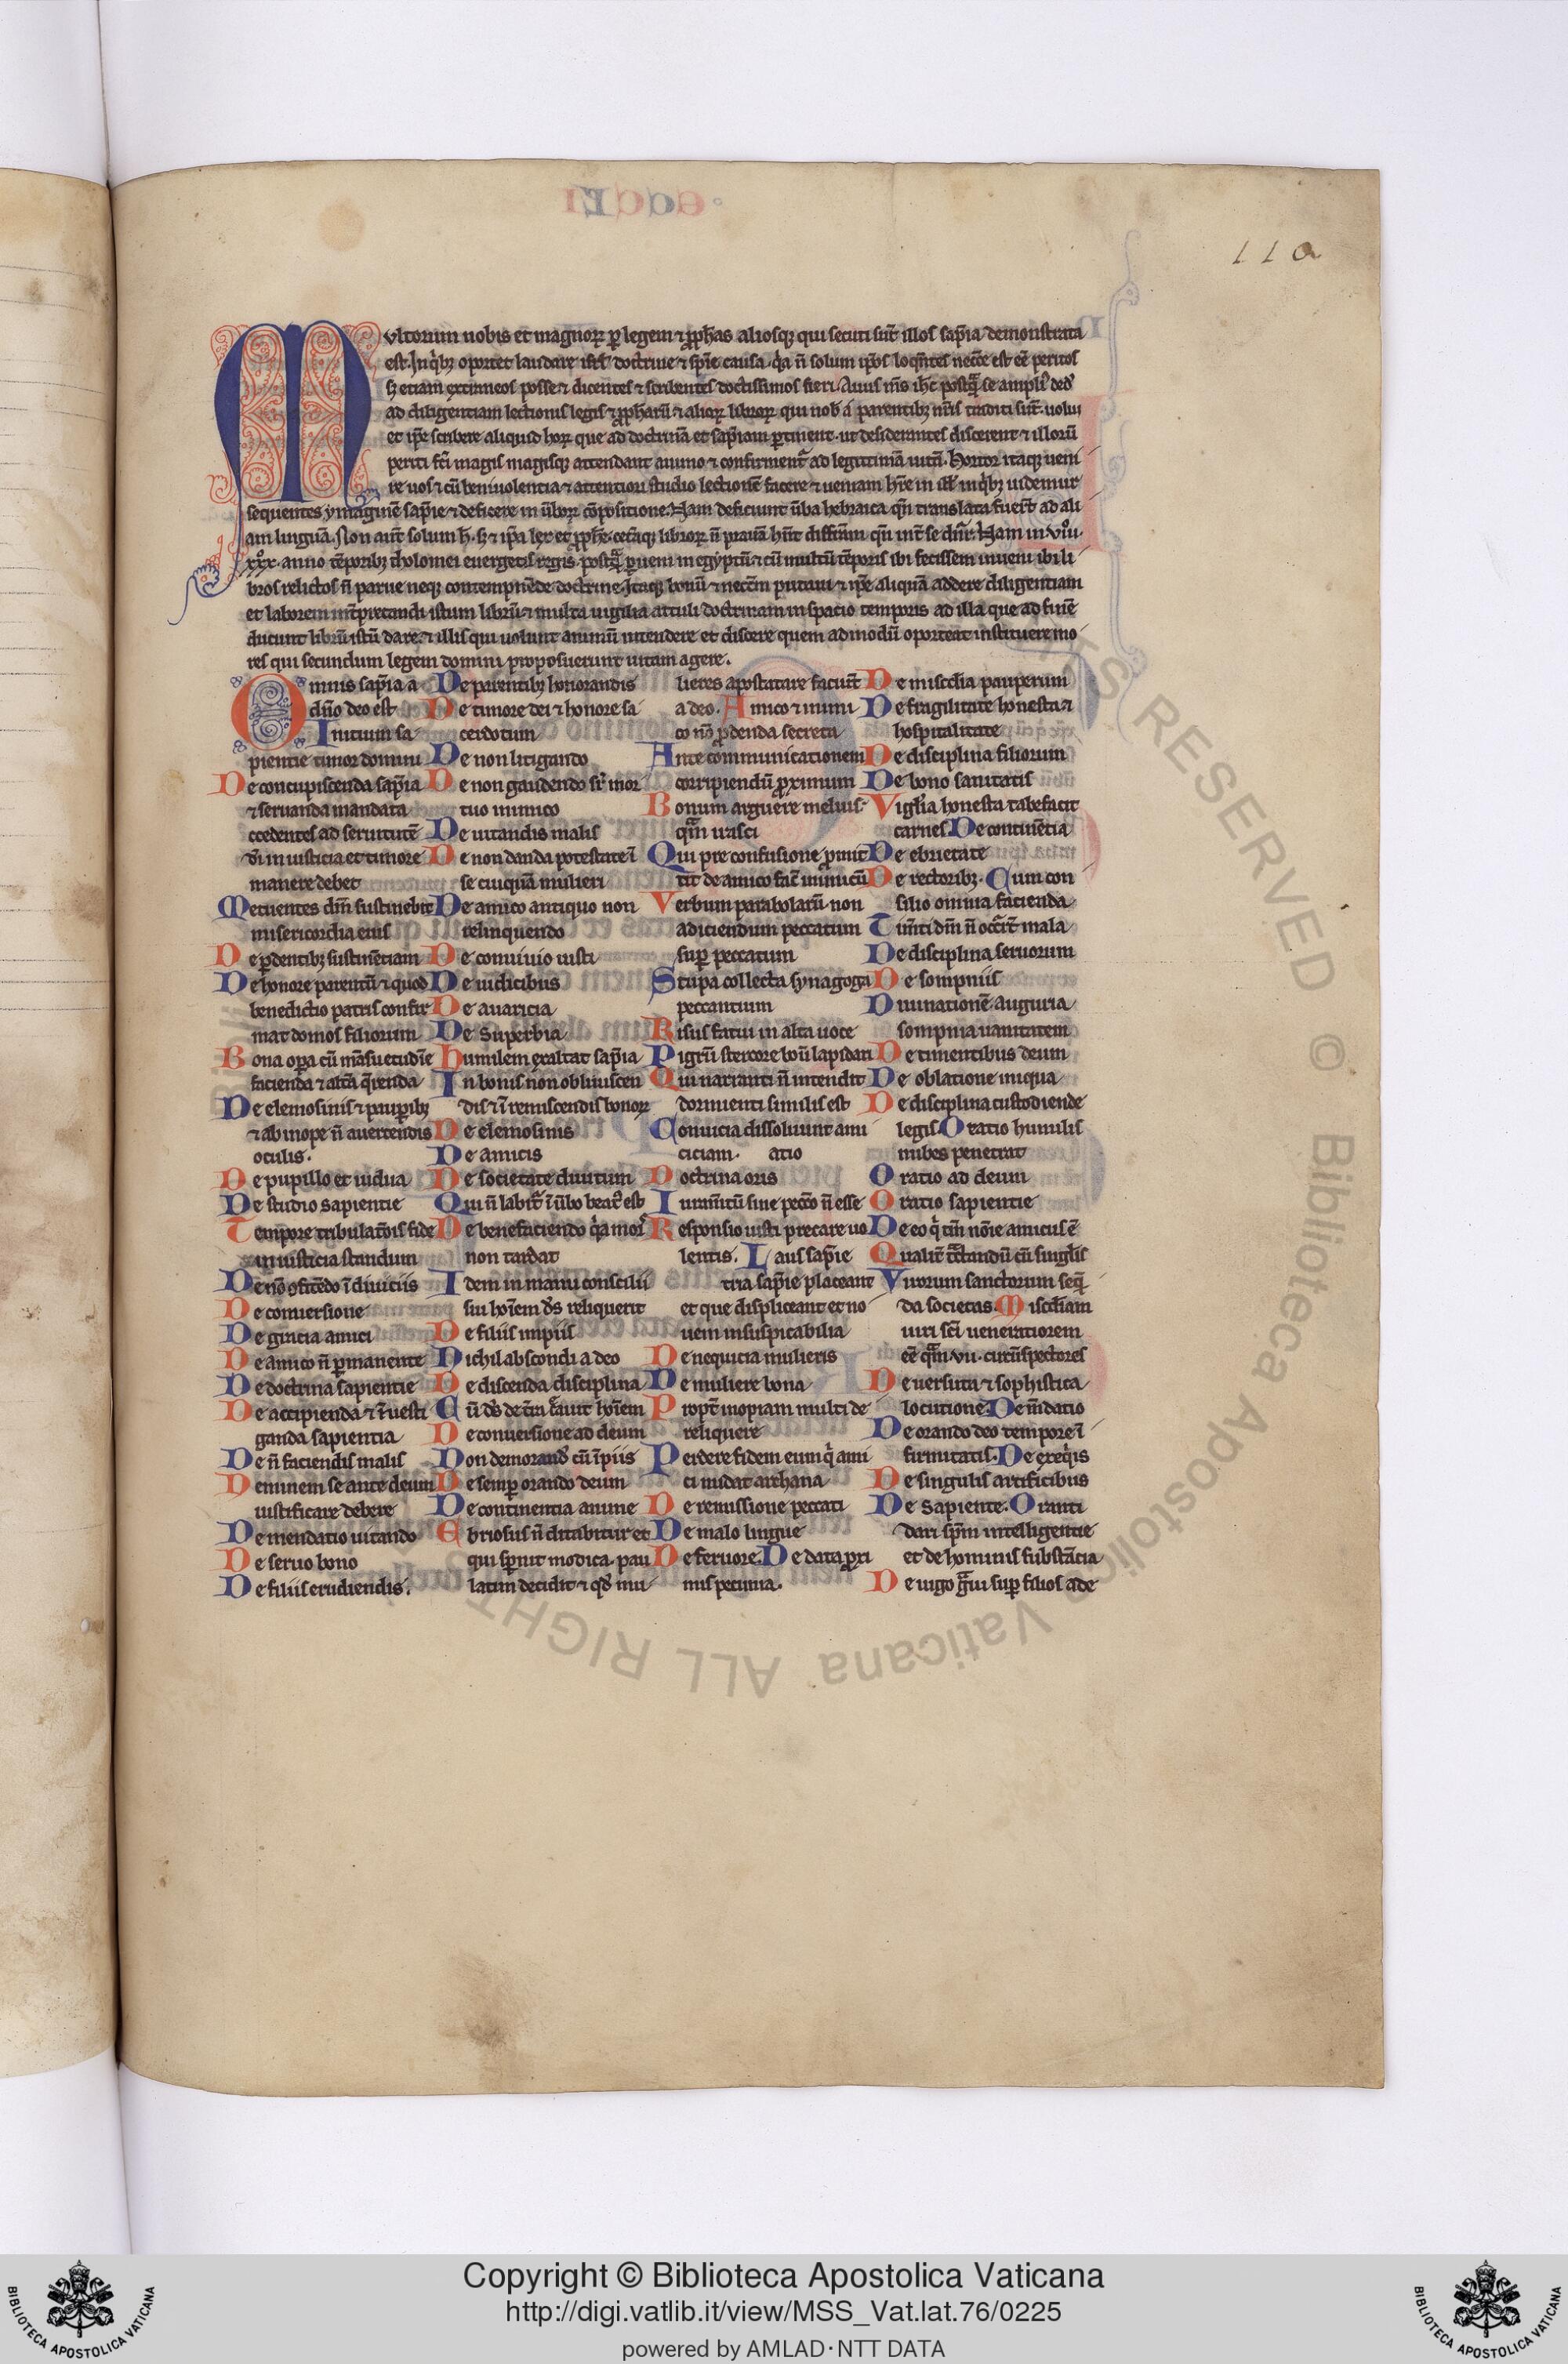 110
Multorum nobis et magnoꝝ ꝑ legem ⁊ ꝓph̄as aliosqꝫ qui secuti sūt illos sap̄ia demonstrata
est. In qͥbꝫ oportet laudare isr̄l doctrine ⁊ sp̄ie causa. qͥa n̄ solum ip̄os loq̄ntes necc̄e est eē peritos
sꝫ etiam extraneos posse ⁊ dicentes ⁊ scribentes doctissimos fieri. Auus m̄s ih̄c postq̄ se ampliꝰ ded̓
ad diligentiam lectionis legis ⁊ ꝓph̄arū ⁊ alioꝝ libroꝝ qui nob̓ a parentibꝫ nr̄is traditi sūt. uolui
et ip̄e scribere aliquid hoꝝ que ad doctrinā et sap̄iam ꝑtinent. ut desiderantes discerent ⁊ illorū
periti fc̄i magis magisqꝫ attendant animo ⁊ confirment̄ ad legitimā uitā. Hortor itaqꝫ ueni
re uos ⁊ cū beniuolentia ⁊ attentiori studio lectionē facere ⁊ ueniam hr̄e in ill̓ in qͥbꝫ uidemur
sequentes ymaginē sap̄ie ⁊ deficere in ūboꝝ cōpositione. Nam deficiunt ūba hebraica qn̄ translata fuer̄t ad ali
am linguā. Non aut̄ solum h̄. sꝫ ⁊ ip̄a lex et ꝓph̄e. cet̄aqꝫ libroꝝ n̄ prauā hn̄t diffr̄am qn̄ int̄ se dn̄r. Nam in viiiͦ.
xxxͦ. anno tēporibꝫ tholomei euergetis regis. postq̄ ꝑueni in egyptū ⁊ cū multū tēporis ibi fecissem inueni ibi li
bros relictos n̄ parue neqꝫ contempnēde doctrine. Itaqꝫ bonū ⁊ necc̄m putaui ⁊ ip̄e aliquā addere diligentiam
et laborem int̄pretandi istum librū ⁊ multa uigilia attuli doctrinam in spacio temporis ad illa que ad finē
ducunt librū istū dare. ⁊ illis qui uolunt animū intendere et discere quem admodū oporteat instituere mo
res qui secundum legem domini proposuerunt uitam agere.
Omnis sap̄ia a
dn̄o deo est
Initium sa
pientie timor domini
De concupiscenda sap̄ia
⁊ seruanda mandata
ccedentes ad seruitutē
di in iusticia et timore
manere debet
Metuentes dm̄ sustinebit
misericordia eius
De ꝑdentibꝫ sustinētiam
De honore parentū ⁊ quod
benedictio patris confir
mat domos filiorum
Bona oꝑa cū māsuetudīe
facienda ⁊ alta q̄renda
De elemosinis ⁊ pauꝑibꝫ
⁊ ab inope n̄ auertendis
oculis.
De pupillo et uidua
De studio sapientie
Tempore tribulat̄ois fide
in iusticia standum
De nō ꝯfitēdo ī diuiciis
De conuersione
De gracia amici
De amico n̄ ꝑmanente
De doctrina sapientie
De accipienda ⁊ īuesti
ganda sapientia
De n̄ faciendis malis
Neminem se ante deum
iustificare debere
De mendatio uitando
De seruo bono
De filiis erudiendis.
De parentibꝫ honorandis
De timore dei ⁊ honore sa
cerdotum
De non litigando
De non gaudendo sr̄ mor
tuo inimico
De uitandis malis
De non danda potestate ī
se cuiquā mulieri
De amico antiquo non
relinquendo
De conuiuio iusti
De iudicibus
De auaricia
De Superbia
humilem exaltat sap̄ia
In bonis non obliuiscen
dis ⁊ ī remiscendis bonoꝝ
De elemosinis
De amicis
De societate diuitum
Qui n̄ labit̄ ī ūbo beatꝰ est
De benefaciendo qͥa mors
non tardat
Idem in manu conscilii
sui hoīem ds̄ reliquerit
De filiis impiis
Nichil abscondi a deo
De discenda disciplina
Cū ds̄ de tr̄a creauit hoīem
De conuersione ad deum
Non demorand̓ cū īpiis
De semꝑ orando deum
De continentia anime
Ebriosus n̄ ditabitur et
qui sꝑnit modica. pau
latim decidit ⁊ qd̓ mu
lieres apostatare faciūt
a deo. Amico ⁊ inimi
co nō ꝓdenda secreta
Ante communicationem
corripiendū proximum
Bonum arguere melius
q̄m irasci
Qui pre confusione ꝓmit
tit de amico fac̄ inimicū
Verbum parabolarū non
adiciendum peccatum
suꝑ peccatum
Stupa collecta synagoga
peccantium
Risus fatui in alta uoce
Pigrū stercore boū lapidari
Qui narranti n̄ intendit
dormienti similis est
Conuicia dissoluunt ami
ciciam. atio
Doctrina oris
Iuram̄tū sine pecc̄o n̄ esse
Responsio iusti precare uo
lentis. Laus sap̄ie
tria sap̄ie placeant
et que displiceant et no
uem insuspicabilia
De nequicia mulieris
De muliere bona
Propt̄ inopiam multi de
reliquere
Perdere fidem eum qͥ ami
ci nudat archana
De remissione peccati
De malo lingue
De feruore. De data ꝓxi
mis pecunia.
De miscd̄ia pauperum
De fragilitate honesta ⁊
hospitalitate
De disciplina filiorum
De bono sanitatis
Vigilia honesta tabefacit
carnes De continētia
De ebrietate
De rectoribꝫ. Cum con
silio omnia facienda
Tim̄ti dm̄ n̄ occr̄it mala
De disciplina seruorum
De sompniis
Diuinationē auguria
sompnia uanitatem
De timentibus deum
De oblatione iniqua
De disciplina custodiende
legis. Oratio humilis
nubes penetrat
Oratio ad deum
Oratio sapientie
De eo qͥ tm̄ nōīe amicus ē
Qualit̄ tc̄tandū cū singl̓is
Virorum sanctorum seq̄
da societas. Miscd̄iam
uiri sc̄i ueneratiorem
eē q̄m vii. circūspectores
De uersuta ⁊ sophistica
locutione De m̄datio
De orando deo tempore ī
firmitatis. De exeqͥis
De singulis artificibus
De Sapiente. Oranti
dari sp̄m intelligentie
et de hominis substācia
De iugo g̓ui suꝑ filios ade
RIGHTS RESERVED © Biblioteca Apostolica Vaticana ALL RIGHT
Copyright © Biblioteca Apostolica Vaticana
http://digi.vatlib.it/view/MSS_Vat.lat.76/0225
powered by AMLAD·NTT DATA
BIBLIOTECA APOSTOLICA VATICANA
BIBLIOTECA APOSTOLICA VATICANA